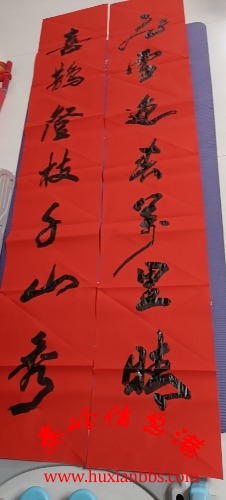 雪迎春萬里晴
喜鵲登枝千山秀
秦岭信息港
www.huxianbbs.com